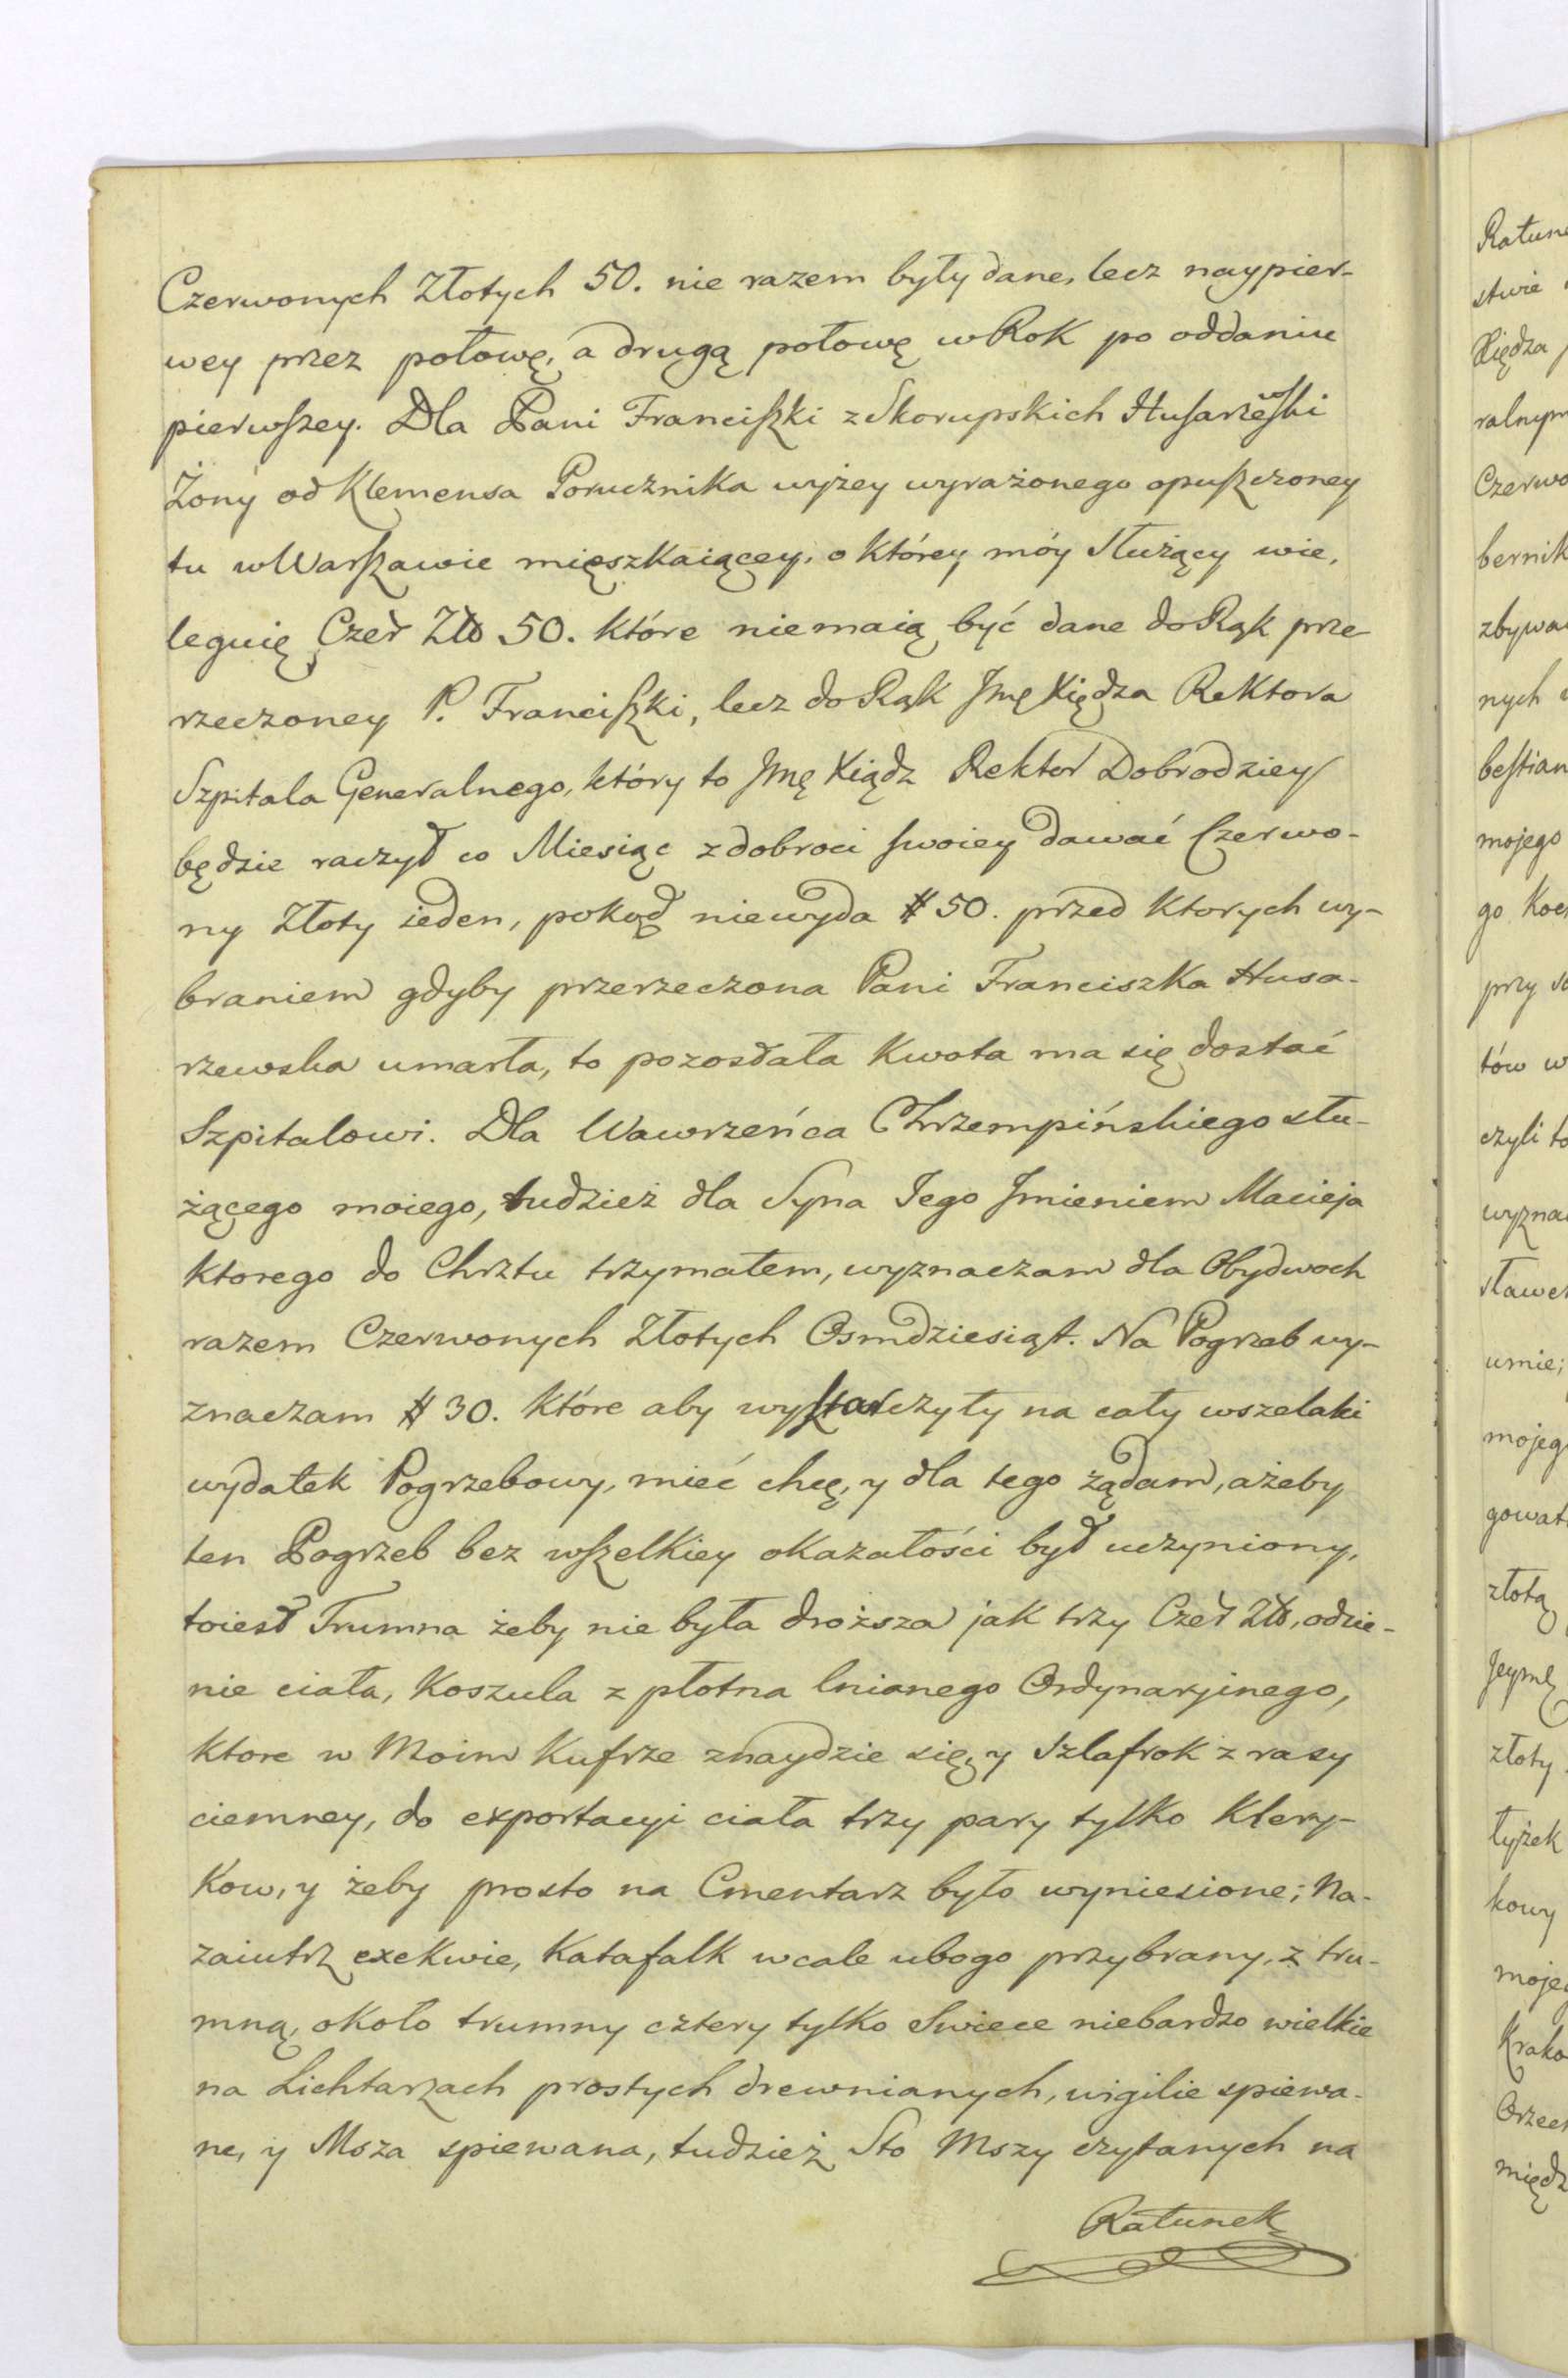 Czerwonych Złotych 50. nie razem były dane, lecz naypier-
wey przez połowę, a drugą połowę w Rok po oddaniu
pierwszey. Dla Pani Franciszki z Skorupskich Husarzewski
Żony od Klemensa Porucznika wyżey wyrażonego opuszczoney
tu w Warszawie mięszkaiącey, o którey móy Służący wie,
leguię Czer Zło 50. które niemaią być dane do Rąk prze-
rzeczoney P. Franciszki, lecz do Rąk Jmę Xiędza Rektora
Szpitala Generalnego, który to Jmę Xiądz Rektor Dobrodziey
będzie raczył co Miesiąc z dobroci swoiey dawać Czerwo-
ny Złoty ieden, pokąd niewyda # 50. przed ktorych wy-
braniem gdyby przerzeczona Pani Franciszka Husa-
rzewska umarła, to pozostała kwota ma się dostać
Szpitalowi. Dla Wawrzeńca Chrzempińskiego słu-
żącego moiego, tudzież dla Syna Jego Jmieniem Macieja
ktorego do Chrztu trzymałem, wyznaczam dla Obydwoch
razem Czerwonych Złotych Osmdziesiąt. Na Pogrzeb wy-
znaczam # 30. które aby wystarczyły na cały wszelaki
wydatek Pogrzebowy, mieć chcę, y dla tego żądam, ażeby
ten Pogrzeb bez wszelkiey okazałości był uczyniony,
toiest Trumna żeby nie była droższa jak trzy Czer Zło, odzie-
nie ciała, Koszula z płotna lnianego Ordynaryinego,
ktore w Moim Kufrze znaydzie się, y Szlafrok z rasy
ciemney, do exportacyi ciała trzy pary tylko Klery-
kow, y żeby prosto na Cmentarz było wyniesione; Na-
zaiutrz exekwie, Katafalk wcale ubogo przybrany, z tru-
mną, około trumny cztery tylko Swiece niebardzo wielkie
na Lichtarzach prostych drewnianych, wigilie spiewa-
ne, y Msza spiewana, tudzież Sto Mszy czytanych na
Ratunek
Ratune
stwie
Xiędza
ralnym
Czerwo
bernik
zbywa
nych
bestian
mojego
go Koc
przy
tów w
czyli to
wyzna
sławe
umie;
mojeg
gowat
złotą
Jeymę
złoty
łyżek
kowy
moje
Krako
Orzec
międz